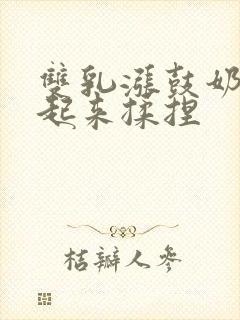 雙乳漲鼓奶
起来揉捏
桔瓣人参